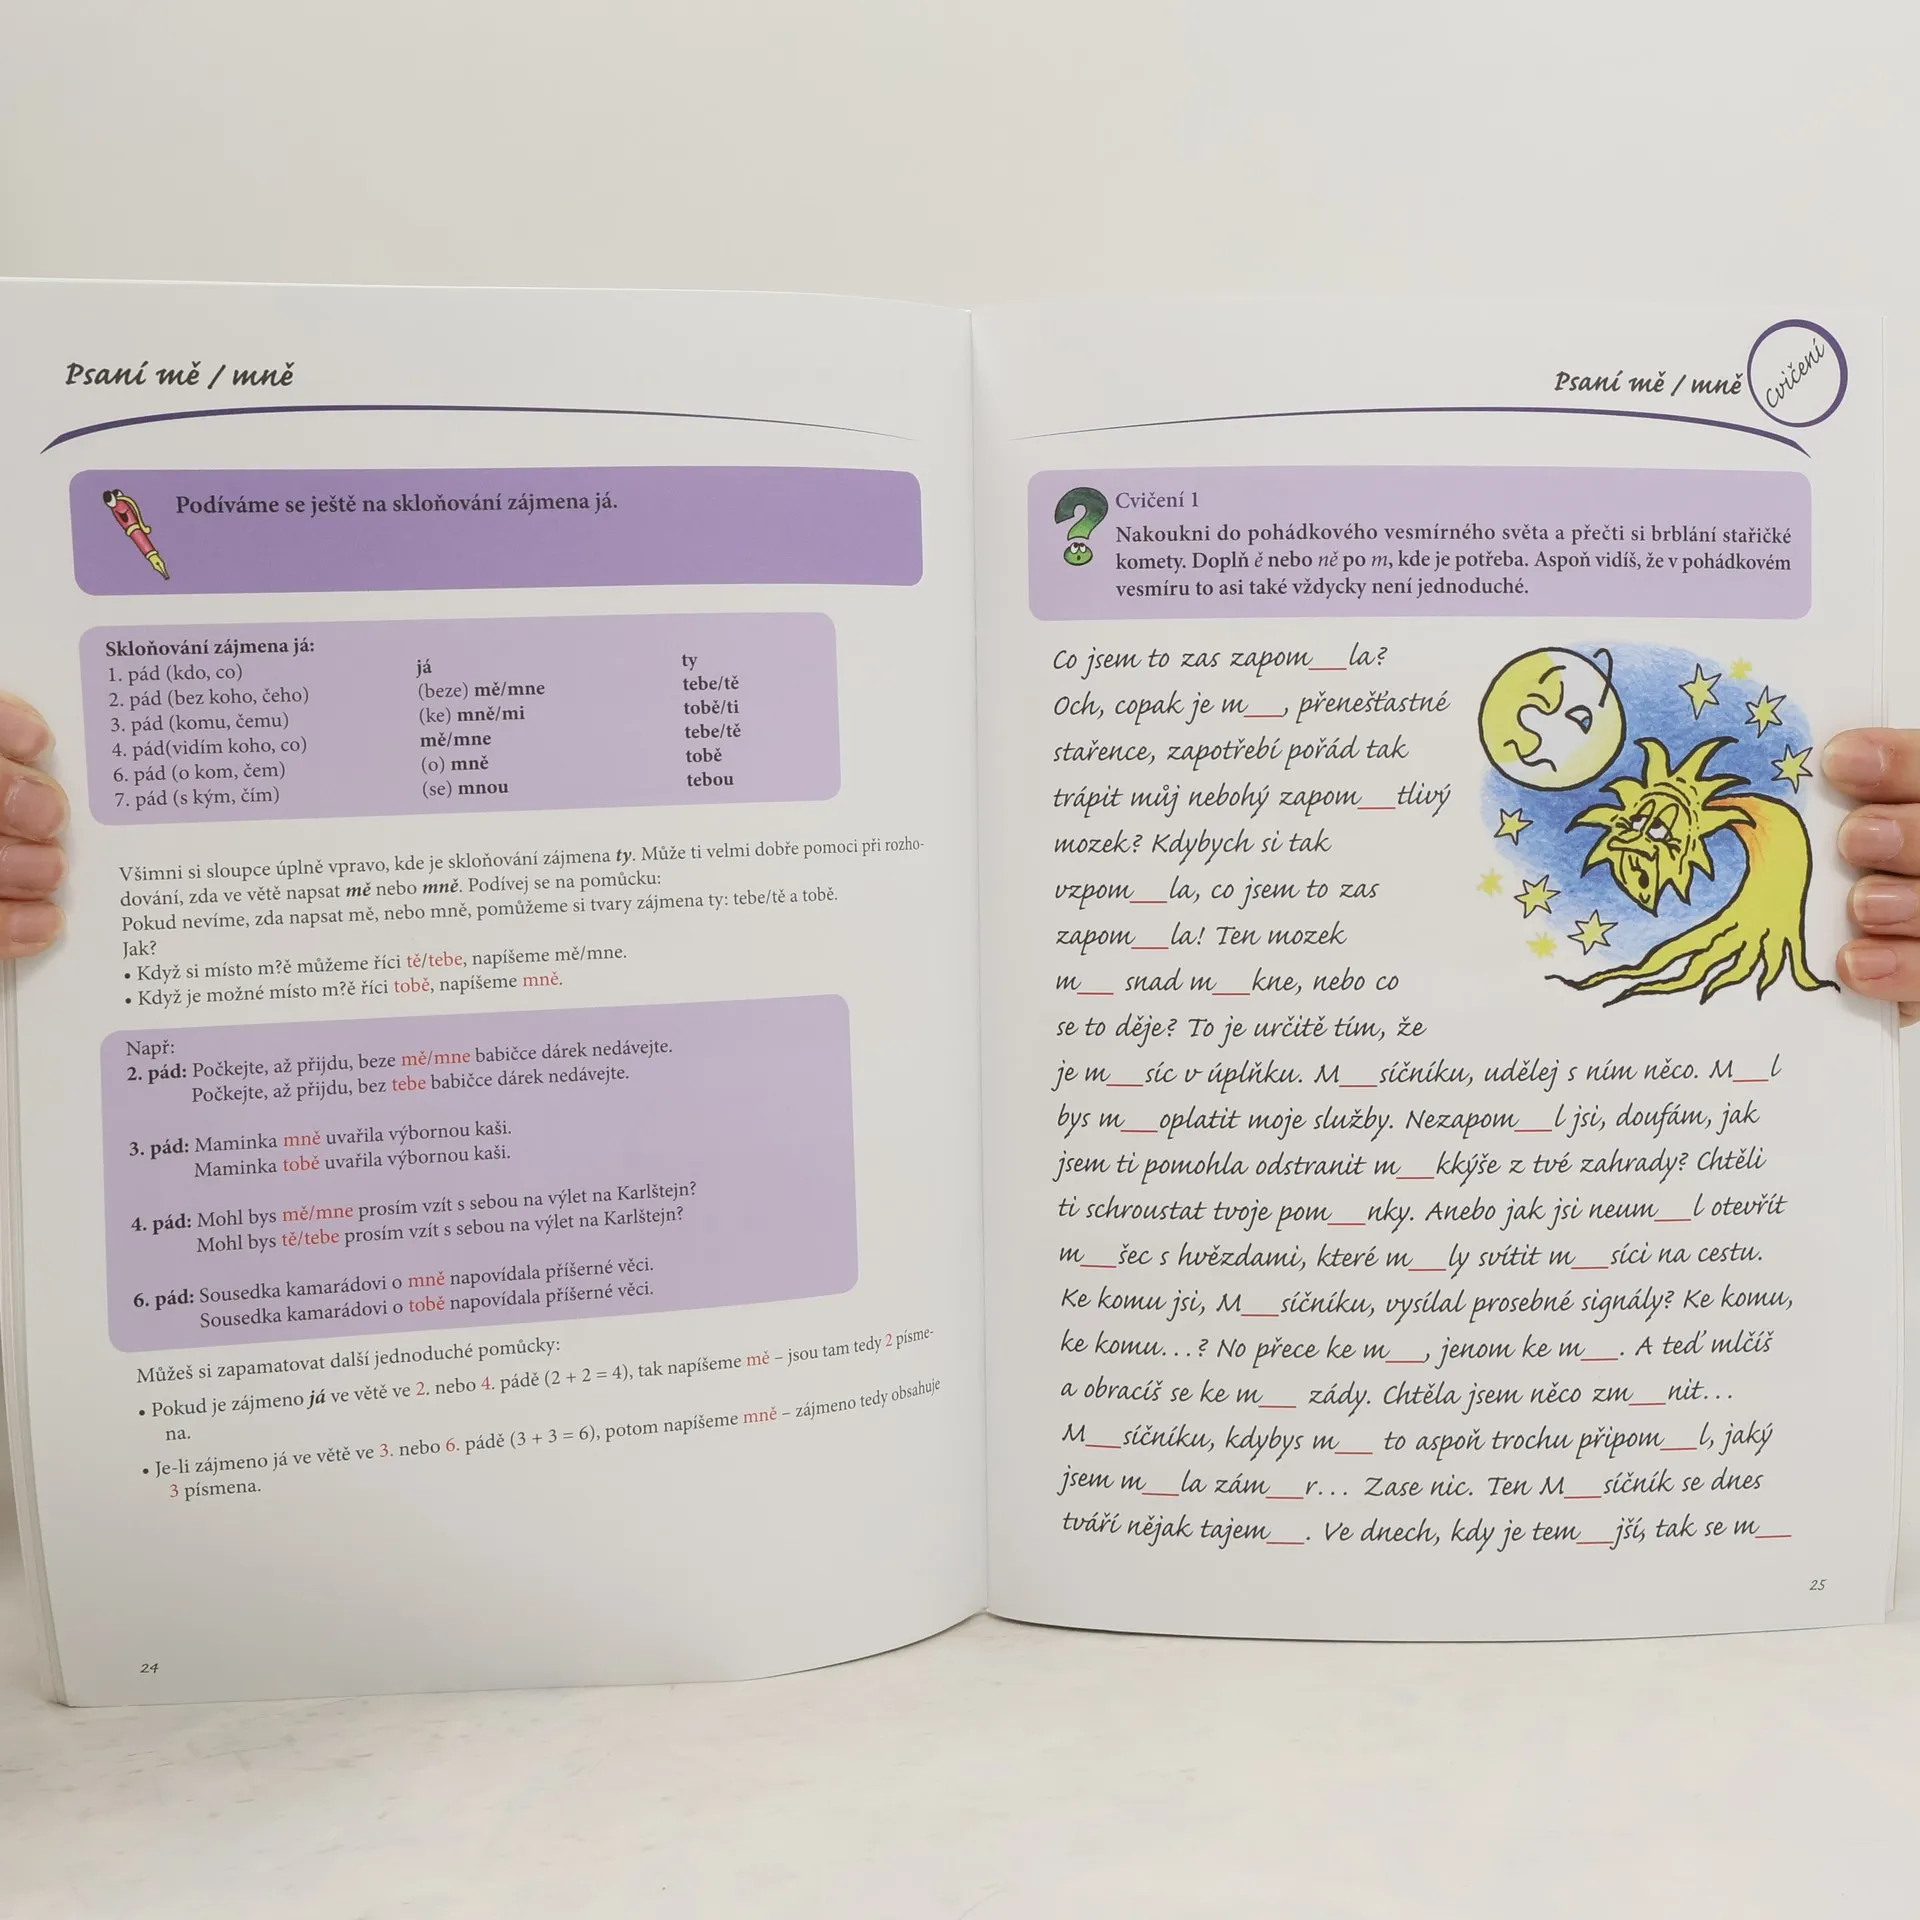 Psaní mě / mně
Podíváme se ještě na skloňování zájmena já.
Skloňování zájmena já:
1. pád (kdo, co) já ty
2. pád (bez koho, čeho) (beze) mě/mne tebe/tě
3. pád (komu, čemu) (ke) mně/mi tobě/ti
4. pád(vidím koho, co) mě/mne tebe/tě
6. pád (o kom, čem) (o) mně tobě
7. pád (s kým, čím) (se) mnou tebou
Všimni si sloupce úplně vpravo, kde je skloňování zájmena ty. Může ti velmi dobře pomoci při rozho-
dování, zda ve větě napsat mě nebo mně. Podívej se na pomůcku:
Pokud nevíme, zda napsat mě, nebo mně, pomůžeme si tvary zájmena ty: tebe/tě a tobě.
Jak?
• Když si místo m?ě můžeme říci tě/tebe, napíšeme mě/mne.
• Když je možné místo m?ě říci tobě, napíšeme mně.
Např:
2. pád: Počkejte, až přijdu, beze mě/mne babičce dárek nedávejte.
Počkejte, až přijdu, bez tebe babičce dárek nedávejte.
3. pád: Maminka mně uvařila výbornou kaši.
Maminka tobě uvařila výbornou kaši.
4. pád: Mohl bys mě/mne prosím vzít s sebou na výlet na Karlštejn?
Mohl bys tě/tebe prosím vzít s sebou na výlet na Karlštejn?
6. pád: Sousedka kamarádovi o mně napovídala příšerné věci.
Sousedka kamarádovi o tobě napovídala příšerné věci.
Můžeš si zapamatovat další jednoduché pomůcky:
• Pokud je zájmeno já ve větě ve 2. nebo 4. pádě (2 + 2 = 4), tak napíšeme mě – jsou tam tedy 2 písme-
na.
• Je-li zájmeno já ve větě ve 3. nebo 6. pádě (3 + 3 = 6), potom napíšeme mně – zájmeno tedy obsahuje
3 písmena.
24
Psaní mě / mně
cvičení
Cvičení 1
Nakoukni do pohádkového vesmírného světa a přečti si brblání stařičké
komety. Doplň ě nebo ně po m, kde je potřeba. Aspoň vidíš, že v pohádkovém
vesmíru to asi také vždycky není jednoduché.
Co jsem to zas zapom__la?
Och, copak je m__, přenešťastné
stařence, zapotřebí pořád tak
trápit můj nebohý zapom__tlivý
mozek? Kdybych si tak
vzpom__la, co jsem to zas
zapom__la! Ten mozek
m__ snad m__kne, nebo co
se to děje? To je určitě tím, že
je m__síc v úplňku. M__síčníku, udělej s ním něco. M__l
bys m__oplatit moje služby. Nezapom__l jsi, doufám, jak
jsem ti pomohla odstranit m__kkýše z tvé zahrady? Chtěli
ti schroustat tvoje pom__nky. Anebo jak jsi neum__l otevřít
m__šec s hvězdami, které m__ly svítit m__síci na cestu.
Ke komu jsi, M__síčníku, vysílal prosebné signály? Ke komu,
ke komu...? No přece ke m__, jenom ke m__. A teď mlčíš
a obracíš se ke m__ zády. Chtěla jsem něco zm__nit...
M__síčníku, kdybys m__ to aspoň trochu připom__l, jaký
jsem m__la zám__r... Zase nic. Ten M__síčník se dnes
tváří nějak tajem__. Ve dnech, kdy je tem__jší, tak se m__
25